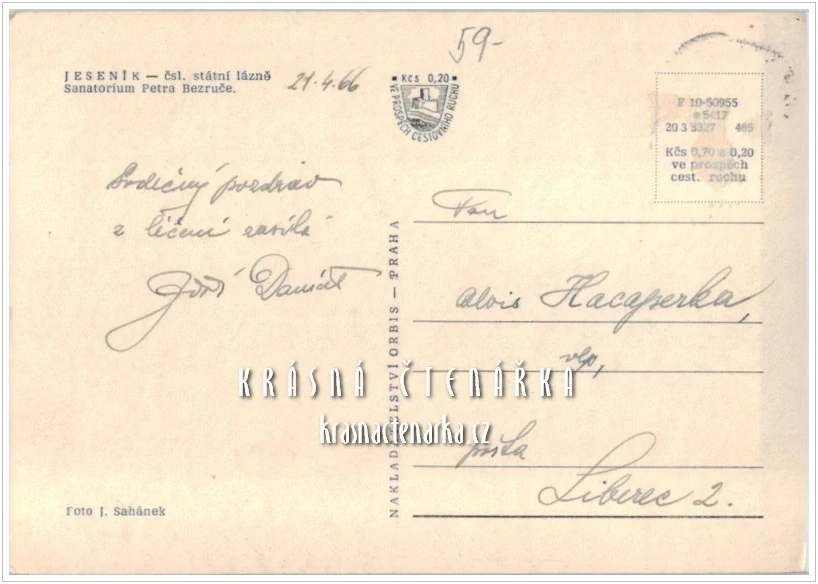 59-
JESENÍK — čsl. státní lázně
Sanatorium Petra Bezruče.
21.4.66
Kčs 0,20
VE PROSPĚCH CESTOVNÍHO RUCHU
F 10-50955
e 5417
20 3 3327 465
Kčs 0,70 + 0,20
ve prospěch
cest. ruchu
Srdečný pozdrav
z léčení zasílá
Jiří
Pan
Alois
vlp,
pošta
Liberec 2.
NAKLADATELSTVÍ ORBIS — PRAHA
KRÁSNÁ ČTENÁŘKA
krasnactenarka.cz
Foto J. Sahánek